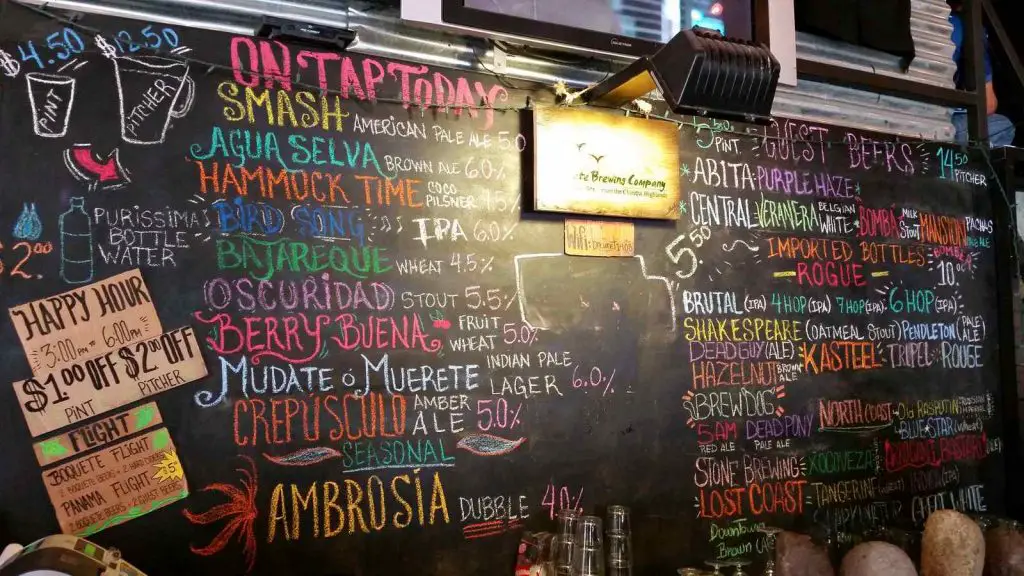 $4.50
PINT
$12.50
PITCHER
PURISSIMA
BOTTLE
WATER
2.00
HAPPY HOUR
3:00 pm 6:00 pm
$1.00 OFF
PINT
$2.00 OFF
PITCHER
FLIGHT
BOQUETE FLIGHT
PANAMA FLIGHT
2 GUEST BEERS
ON TAP TODAY
SMASH AMERICAN PALE ALE 5.0
AGUA SELVA BROWN ALE 6.0%
HAMMOCK TIME COCO PILSNER
BIRD SONG IPA 6.0%
BAJAREQUE WHEAT 4.5%
(OSCURIDAD) STOUT 5.5%
BERRY BUENA FRUIT WHEAT 5.0%
MÚDATE ó MUERETE INDIAN PALE LAGER 6.0%
CREPÚSCULO AMBER ALE 5.0%
SEASONAL
AMBROSÍA DUBBLE 4.0%
Brewing Company
WiFi:
5.50
5.50
PINT
GUEST BEERS
14.50
PITCHER
*ABITA-PURPLE HAZE*
*CENTRAL-VERANERA BELGIAN WHITE BOMBA MILK STOUT MANSION
IMPORTED BOTTLES
ROGUE
10.00
BRUTAL (IPA) 4 HOP (IPA) 7 HOP (IPA) 6 HOP (IPA)
SHAKESPEARE (OATMEAL STOUT) PENDLETON (PALE ALE)
DEAD GUY (ALE) KASTEEL TRIPEL ROUGE
HAZELNUT BROWN ALE
BREWDOG NORTH COAST OLD RASPUTIN
5AM DEAD PONY BLUE STAR (wheat)
RED ALE PALE ALE
STONE BREWING XOCOVEZA
LOST COAST TANGERINE
GREAT WHITE
Downtown
Brown